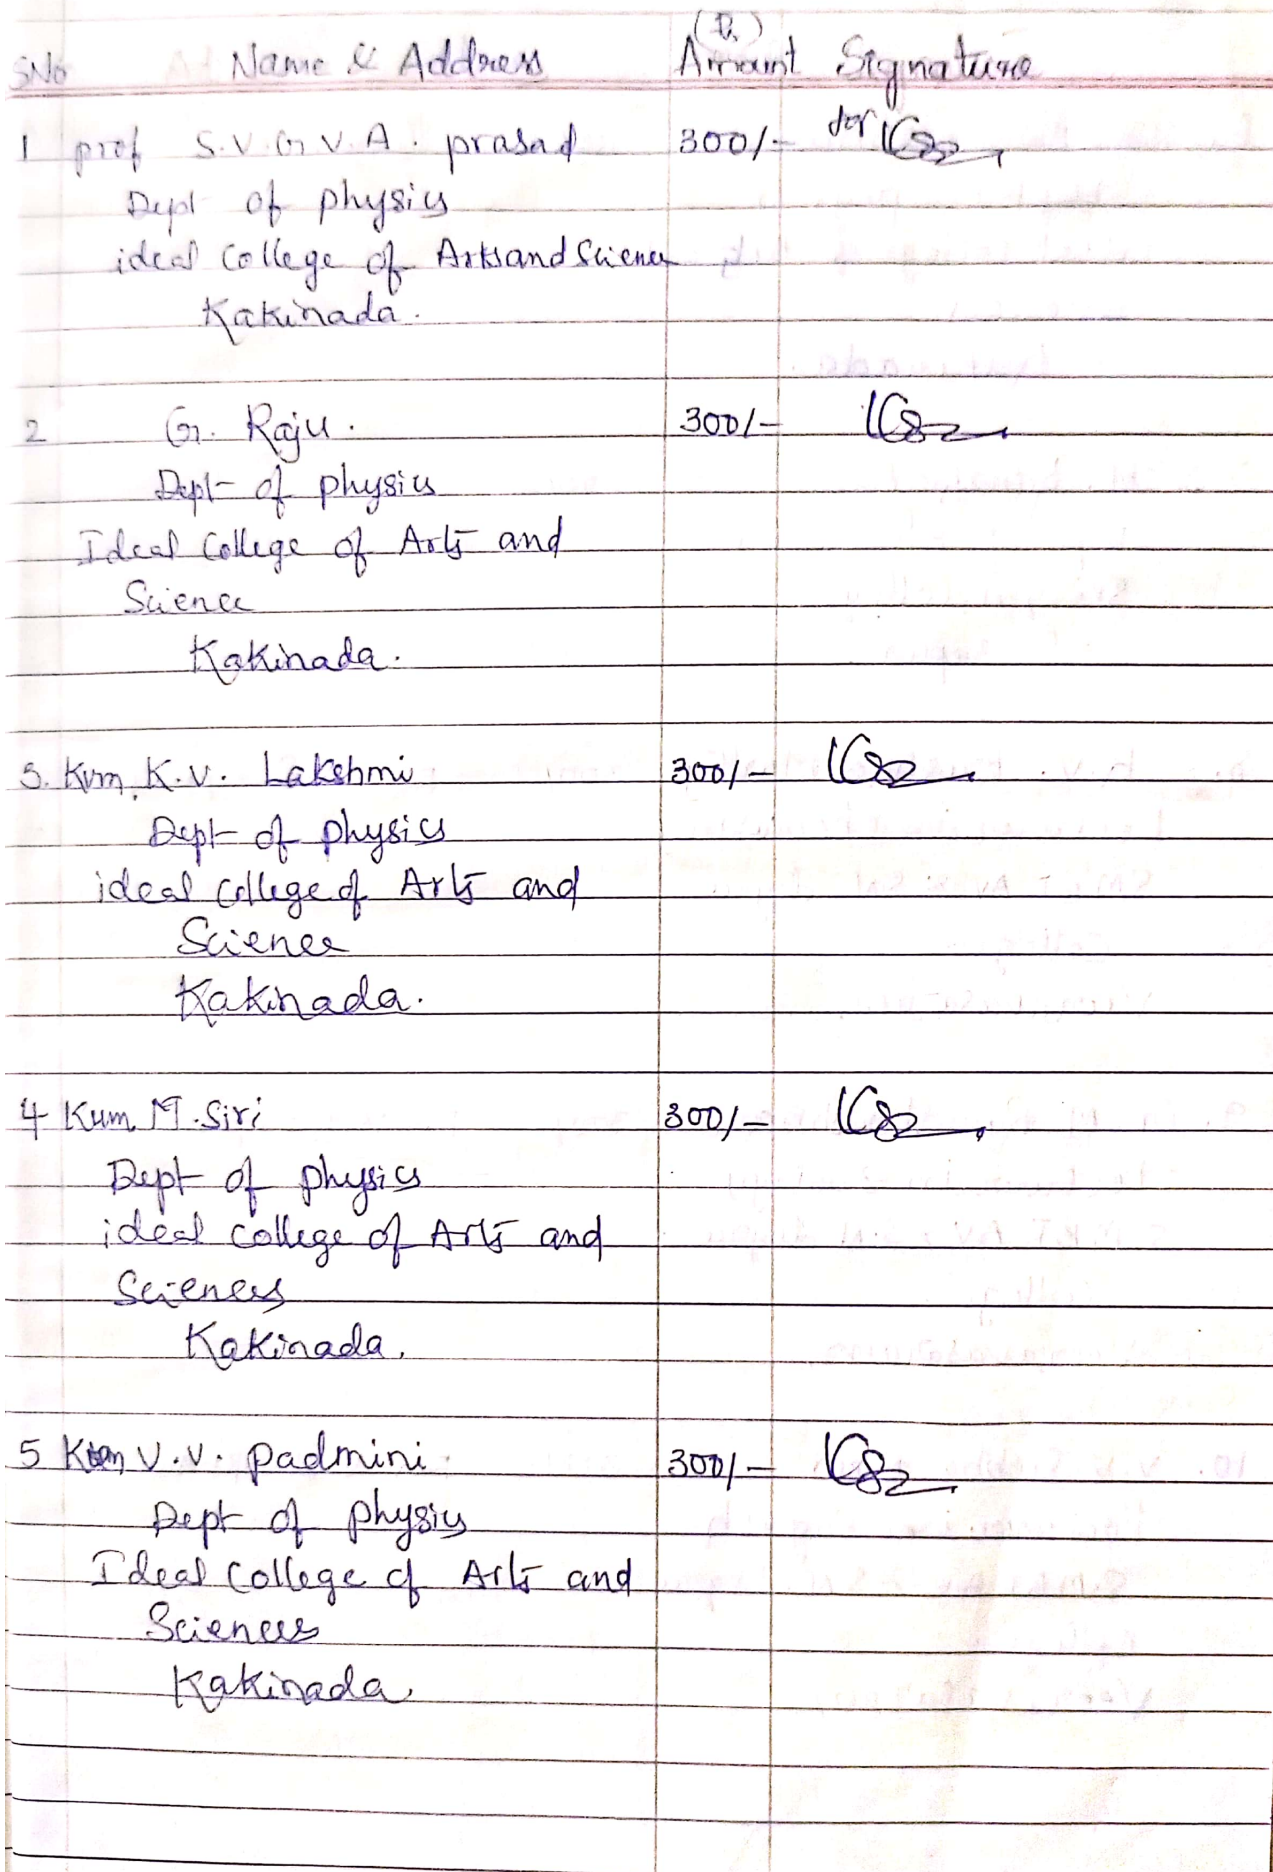 (Rs.)
SNo Name & Address Amount Signature
1 prof S.V.G.V.A. prasad 300/- for
Dept of physics
ideal College of Arts and Science
Kakinada.
2 G. Raju. 300/-
Dept of physics
Ideal College of Arts and
Science
Kakinada.
3. Kum. K.V. Lakshmi 300/-
Dept of physics
ideal College of Arts and
Science
Kakinada.
4 Kum M. Siri 300/-
Dept of physics
ideal college of Arts and
Sciences
Kakinada.
5 Kum V.V. Padmini. 300/-
Dept of physics
Ideal College of Arts and
Sciences
Kakinada.